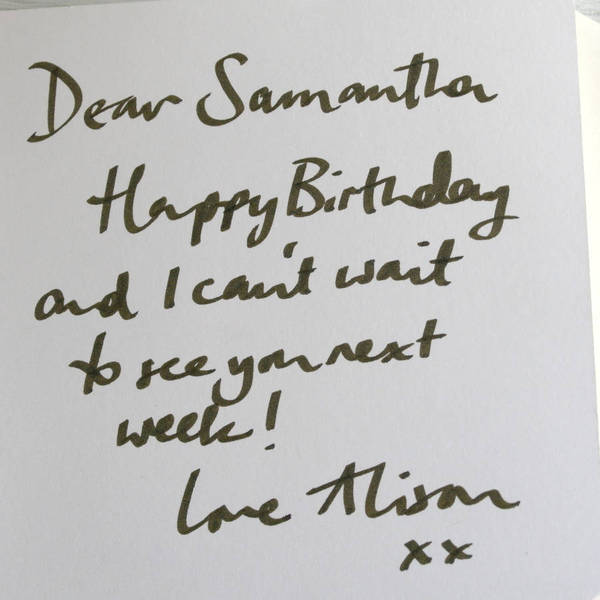 Dear Samantha
Happy Birthday
and I can't wait
to see you next
week!
Love Alison
xx